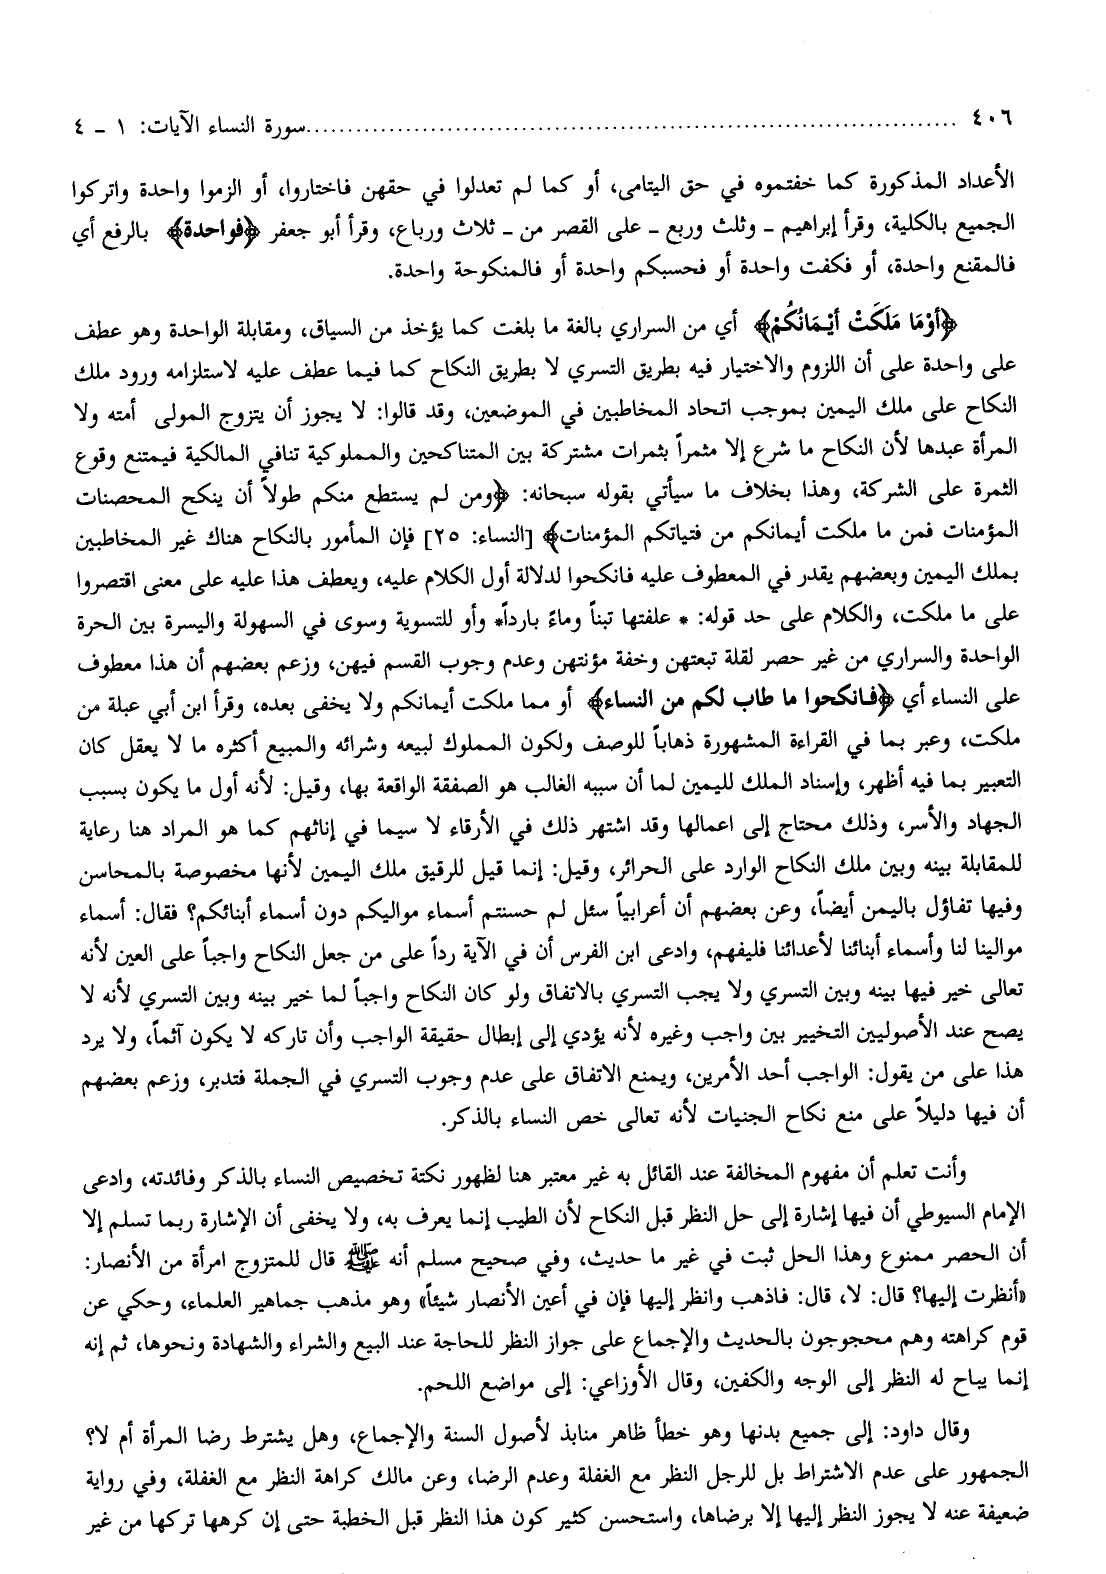 ٤٠٦ ................................................ سورة النساء الآيات: ١ - ٤
الأعداد المذكورة كما خفتموه في حق اليتامى، أو كما لم تعدلوا في حقهن فاختاروا، أو الزموا واحدة واتركوا
الجميع بالكلية، وقرأ إبراهيم - وثلث وربع - على القصر من - ثلاث ورباع، وقرأ أبو جعفر ﴿فواحدة﴾ بالرفع أي
فالمقنع واحدة، أو فكفت واحدة أو فحسبكم واحدة أو فالمنكوحة واحدة.
﴿أَوْ مَا مَلَكَتْ أَيْمَانُكُمْ﴾ أي من السراري بالغة ما بلغت كما يؤخذ من السياق، ومقابلة الواحدة وهو عطف
على واحدة على أن اللزوم والاختيار فيه بطريق التسري لا بطريق النكاح كما فيما عطف عليه لاستلزامه ورود ملك
النكاح على ملك اليمين بموجب اتحاد المخاطبين في الموضعين، وقد قالوا: لا يجوز أن يتزوج المولى أمته ولا
المرأة عبدها لأن النكاح ما شرع إلا مثمراً بثمرات مشتركة بين المتناكحين والمملوكية تنافي المالكية فيمتنع وقوع
الثمرة على الشركة، وهذا بخلاف ما سيأتي بقوله سبحانه: ﴿ومن لم يستطع منكم طولاً أن ينكح المحصنات
المؤمنات فمن ما ملكت أيمانكم من فتياتكم المؤمنات﴾ [النساء: ٢٥] فإن المأمور بالنكاح هناك غير المخاطبين
بملك اليمين وبعضهم يقدر في المعطوف عليه فانكحوا لدلالة أول الكلام عليه، ويعطف هذا عليه على معنى اقتصروا
على ما ملكت، والكلام على حد قوله: * علفتها تبناً وماءً بارداً* وأو للتسوية وسوى في السهولة واليسرة بين الحرة
الواحدة والسراري من غير حصر لقلة تبعتهن وخفة مؤنتهن وعدم وجوب القسم فيهن، وزعم بعضهم أن هذا معطوف
على النساء أي ﴿فانكحوا ما طاب لكم من النساء﴾ أو مما ملكت أيمانكم ولا يخفى بعده، وقرأ ابن أبي عبلة من
ملكت، وعبر بما في القراءة المشهورة ذهاباً للوصف ولكون المملوك لبيعه وشرائه والمبيع أكثره ما لا يعقل كان
التعبير بما فيه أظهر، وإسناد الملك لليمين لما أن سببه الغالب هو الصفقة الواقعة بها، وقيل: لأنه أول ما يكون بسبب
الجهاد والأسر، وذلك محتاج إلى اعمالها وقد اشتهر ذلك في الأرقاء لا سيما في إناثهم كما هو المراد هنا رعاية
للمقابلة بينه وبين ملك النكاح الوارد على الحرائر، وقيل: إنما قيل للرقيق ملك اليمين لأنها مخصوصة بالمحاسن
وفيها تفاؤل باليمن أيضاً، وعن بعضهم أن أعرابياً سئل لم حسنتم أسماء مواليكم دون أسماء أبنائكم؟ فقال: أسماء
موالينا لنا وأسماء أبنائنا لأعدائنا فليفهم، وادعى ابن الفرس أن في الآية رداً على من جعل النكاح واجباً على العين لأنه
تعالى خير فيها بينه وبين التسري ولا يجب التسري بالاتفاق ولو كان النكاح واجباً لما خير بينه وبين التسري لأنه لا
يصح عند الأصوليين التخيير بين واجب وغيره لأنه يؤدي إلى إبطال حقيقة الواجب وأن تاركه لا يكون آثماً، ولا يرد
هذا على من يقول: الواجب أحد الأمرين، ويمنع الاتفاق على عدم وجوب التسري في الجملة فتدبر، وزعم بعضهم
أن فيها دليلاً على منع نكاح الجنيات لأنه تعالى خص النساء بالذكر.
وأنت تعلم أن مفهوم المخالفة عند القائل به غير معتبر هنا لظهور نكتة تخصيص النساء بالذكر وفائدته، وادعى
الإمام السيوطي أن فيها إشارة إلى حل النظر قبل النكاح لأن الطيب إنما يعرف به، ولا يخفى أن الإشارة ربما تسلم إلا
أن الحصر ممنوع وهذا الحل ثبت في غير ما حديث، وفي صحيح مسلم أنه ﷺ قال للمتزوج امرأة من الأنصار:
«أنظرت إليها؟ قال: لا، قال: فاذهب وانظر إليها فإن في أعين الأنصار شيئاً» وهو مذهب جماهير العلماء، وحكي عن
قوم كراهته وهم محجوجون بالحديث والإجماع على جواز النظر للحاجة عند البيع والشراء والشهادة ونحوها، ثم إنه
إنما يباح له النظر إلى الوجه والكفين، وقال الأوزاعي: إلى مواضع اللحم.
وقال داود: إلى جميع بدنها وهو خطأ ظاهر منابذ لأصول السنة والإجماع، وهل يشترط رضا المرأة أم لا؟
الجمهور على عدم الاشتراط بل للرجل النظر مع الغفلة وعدم الرضا، وعن مالك كراهة النظر مع الغفلة، وفي رواية
ضعيفة عنه لا يجوز النظر إليها إلا برضاها، واستحسن كثير كون هذا النظر قبل الخطبة حتى إن كرهها تركها من غير